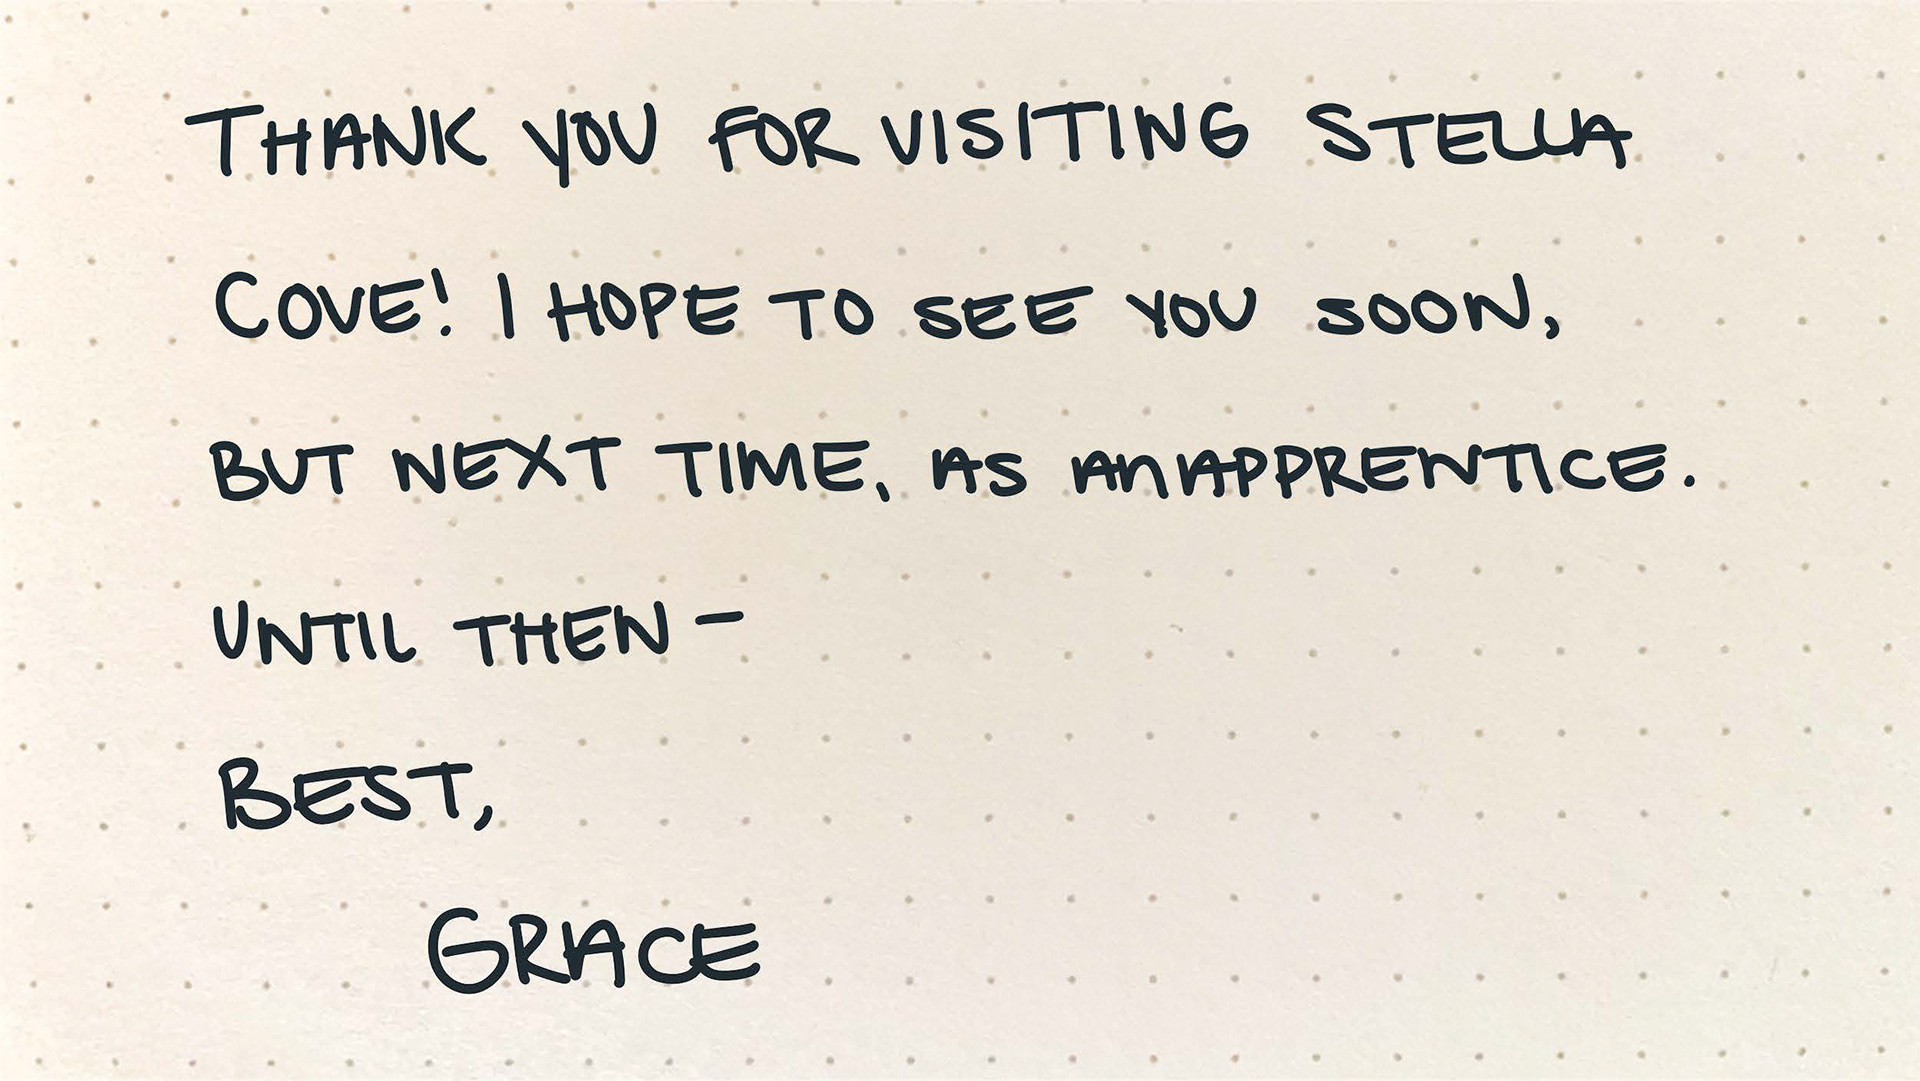 THANK YOU FOR VISITING STELLA
COVE! I HOPE TO SEE YOU SOON,
BUT NEXT TIME, AS AN APPRENTICE.
UNTIL THEN –
BEST,
GRACE